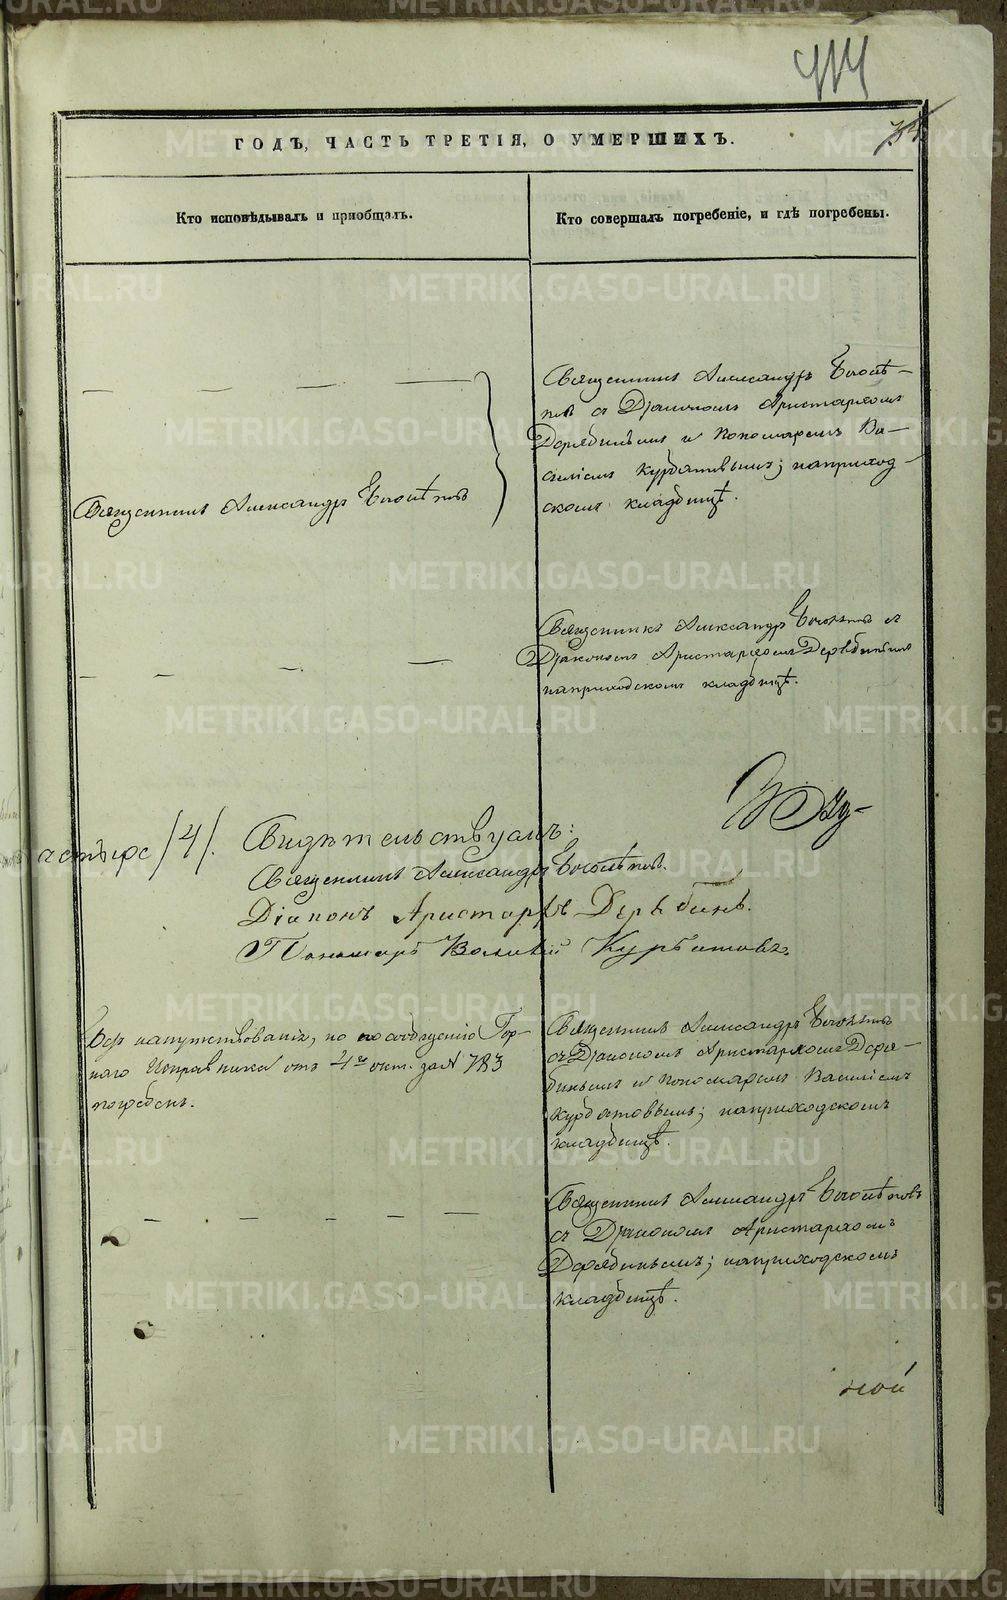 414
ГОДЪ, ЧАСТЬ ТРЕТІЯ, О УМЕРШИХЪ.
Кто исповѣдывалъ и приобщалъ.
Кто совершалъ погребеніе, и гдѣ погребены.
Священникъ Александръ
Священникъ Александръ
съ Діакономъ Аристархомъ
Дерябинымъ и Пономаремъ Ва-
силіемъ Курбатовымъ; на приход-
скомъ кладбищѣ.
Священникъ Александръ съ
Діакономъ Аристархомъ Дерябинымъ
на приходскомъ кладбищѣ.
четыре /4/. Свидѣтельствуемъ:
Священникъ Александръ
Діаконъ Аристархъ Дерябинъ.
Пономарь Василій Курбатовъ.
Безъ напутствованія, но по сообщенію Гор-
наго Исправника отъ 4го окт. за № 783
погребенъ.
Священникъ Александръ
съ Діакономъ Аристархомъ Деря-
бинымъ и Пономаремъ Василіемъ
Курбатовымъ; на приходскомъ
кладбищѣ.
Священникъ Александръ
съ Діакономъ Аристархомъ
Дерябинымъ; на приходскомъ
кладбищѣ.
ной
METRIKI.GASO-URAL.RU